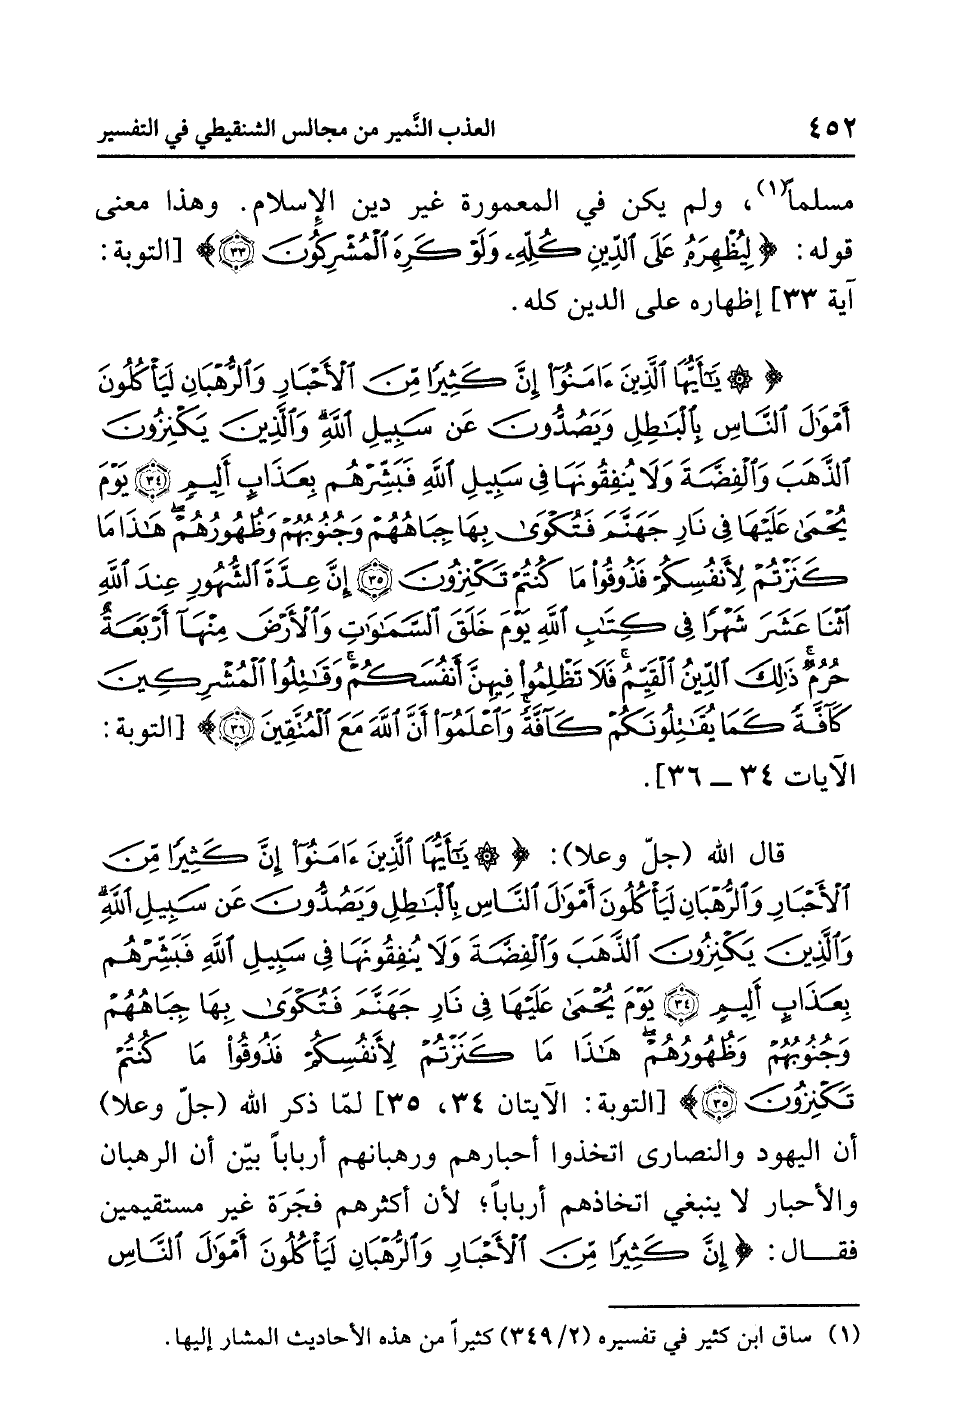 ٤٥٢ العذب النَّمير من مجالس الشنقيطي في التفسير
مسلماً(١)، ولم يكن في المعمورة غير دين الإسلام. وهذا معنى
قوله: ﴿ لِيُظْهِرَهُ عَلَى ٱلدِّينِ كُلِّهِۦ وَلَوْ كَرِهَ ٱلْمُشْرِكُونَ ٣٣﴾ [التوبة:
آية ٣٣] إظهاره على الدين كله.
﴿ ۞ يَٰٓأَيُّهَا ٱلَّذِينَ ءَامَنُوٓا۟ إِنَّ كَثِيرًا مِّنَ ٱلْأَحْبَارِ وَٱلرُّهْبَانِ لَيَأْكُلُونَ
أَمْوَٰلَ ٱلنَّاسِ بِٱلْبَٰطِلِ وَيَصُدُّونَ عَن سَبِيلِ ٱللَّهِۗ وَٱلَّذِينَ يَكْنِزُونَ
ٱلذَّهَبَ وَٱلْفِضَّةَ وَلَا يُنفِقُونَهَا فِى سَبِيلِ ٱللَّهِ فَبَشِّرْهُم بِعَذَابٍ أَلِيمٍ ٣٤ يَوْمَ
يُحْمَىٰ عَلَيْهَا فِى نَارِ جَهَنَّمَ فَتُكْوَىٰ بِهَا جِبَاهُهُمْ وَجُنُوبُهُمْ وَظُهُورُهُمْۖ هَٰذَا مَا
كَنَزْتُمْ لِأَنفُسِكُمْ فَذُوقُوا۟ مَا كُنتُمْ تَكْنِزُونَ ٣٥ إِنَّ عِدَّةَ ٱلشُّهُورِ عِندَ ٱللَّهِ
ٱثْنَا عَشَرَ شَهْرًا فِى كِتَٰبِ ٱللَّهِ يَوْمَ خَلَقَ ٱلسَّمَٰوَٰتِ وَٱلْأَرْضَ مِنْهَآ أَرْبَعَةٌ
حُرُمٌۚ ذَٰلِكَ ٱلدِّينُ ٱلْقَيِّمُۚ فَلَا تَظْلِمُوا۟ فِيهِنَّ أَنفُسَكُمْۚ وَقَٰتِلُوا۟ ٱلْمُشْرِكِينَ
كَآفَّةً كَمَا يُقَٰتِلُونَكُمْ كَآفَّةًۚ وَٱعْلَمُوٓا۟ أَنَّ ٱللَّهَ مَعَ ٱلْمُتَّقِينَ ٣٦﴾ [التوبة:
الآيات ٣٤ ــ ٣٦].
قال الله (جلّ وعلا): ﴿ ۞ يَٰٓأَيُّهَا ٱلَّذِينَ ءَامَنُوٓا۟ إِنَّ كَثِيرًا مِّنَ
ٱلْأَحْبَارِ وَٱلرُّهْبَانِ لَيَأْكُلُونَ أَمْوَٰلَ ٱلنَّاسِ بِٱلْبَٰطِلِ وَيَصُدُّونَ عَن سَبِيلِ ٱللَّهِۗ
وَٱلَّذِينَ يَكْنِزُونَ ٱلذَّهَبَ وَٱلْفِضَّةَ وَلَا يُنفِقُونَهَا فِى سَبِيلِ ٱللَّهِ فَبَشِّرْهُم
بِعَذَابٍ أَلِيمٍ ٣٤ يَوْمَ يُحْمَىٰ عَلَيْهَا فِى نَارِ جَهَنَّمَ فَتُكْوَىٰ بِهَا جِبَاهُهُمْ
وَجُنُوبُهُمْ وَظُهُورُهُمْۖ هَٰذَا مَا كَنَزْتُمْ لِأَنفُسِكُمْ فَذُوقُوا۟ مَا كُنتُمْ
تَكْنِزُونَ ٣٥﴾ [التوبة: الآيتان ٣٤، ٣٥] لمّا ذكر الله (جلّ وعلا)
أن اليهود والنصارى اتخذوا أحبارهم ورهبانهم أرباباً بيّن أن الرهبان
والأحبار لا ينبغي اتخاذهم أرباباً؛ لأن أكثرهم فجَرَة غير مستقيمين
فقـال: ﴿ إِنَّ كَثِيرًا مِّنَ ٱلْأَحْبَارِ وَٱلرُّهْبَانِ لَيَأْكُلُونَ أَمْوَٰلَ ٱلنَّاسِ
(١) ساق ابن كثير في تفسيره (٣٤٩/٢) كثيراً من هذه الأحاديث المشار إليها.